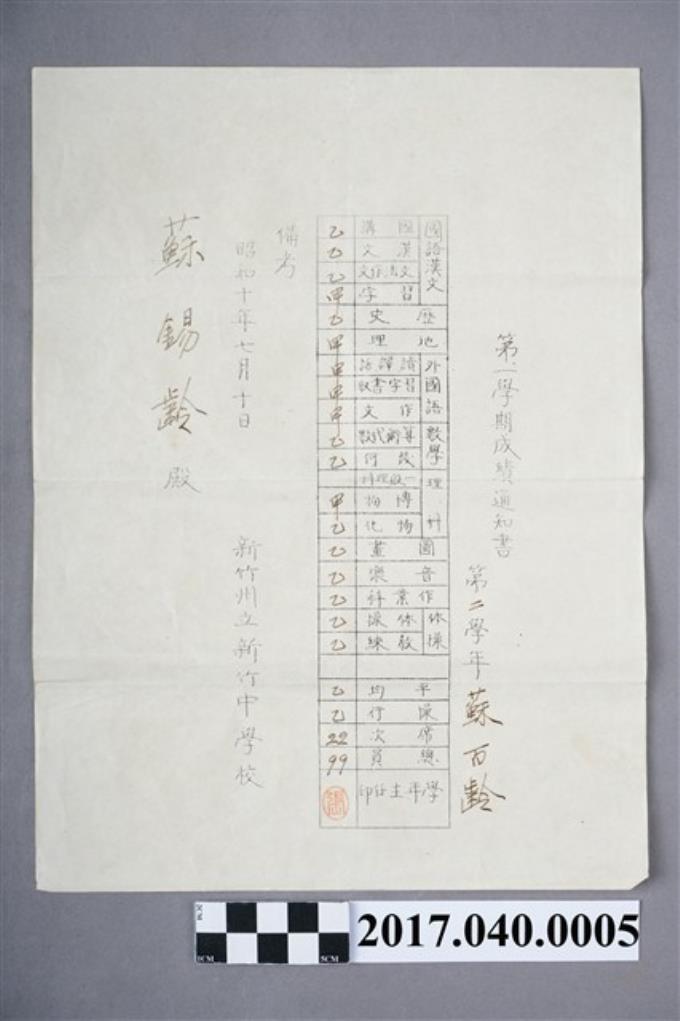 第一學期成績通知書
第二學年 蘇百齡
國語漢文 國講 乙
漢文 乙
文法作文 乙
習字 甲
歷史 乙
地理 甲
外國語 讀譯話 甲
習字書取 甲
作文 甲
數學 算術代數 乙
幾何 乙
理科 一般理科
博物 甲
物化 乙
圖畫 乙
音樂 乙
作業科 乙
体操 体操 乙
教練 乙
平均 乙
操行 乙
席次 22
總員 99
學年主任印
備考
昭和十年七月十日
新竹州立新竹中學校
蘇錫齡殿
1CM
5CM
2017.040.0005